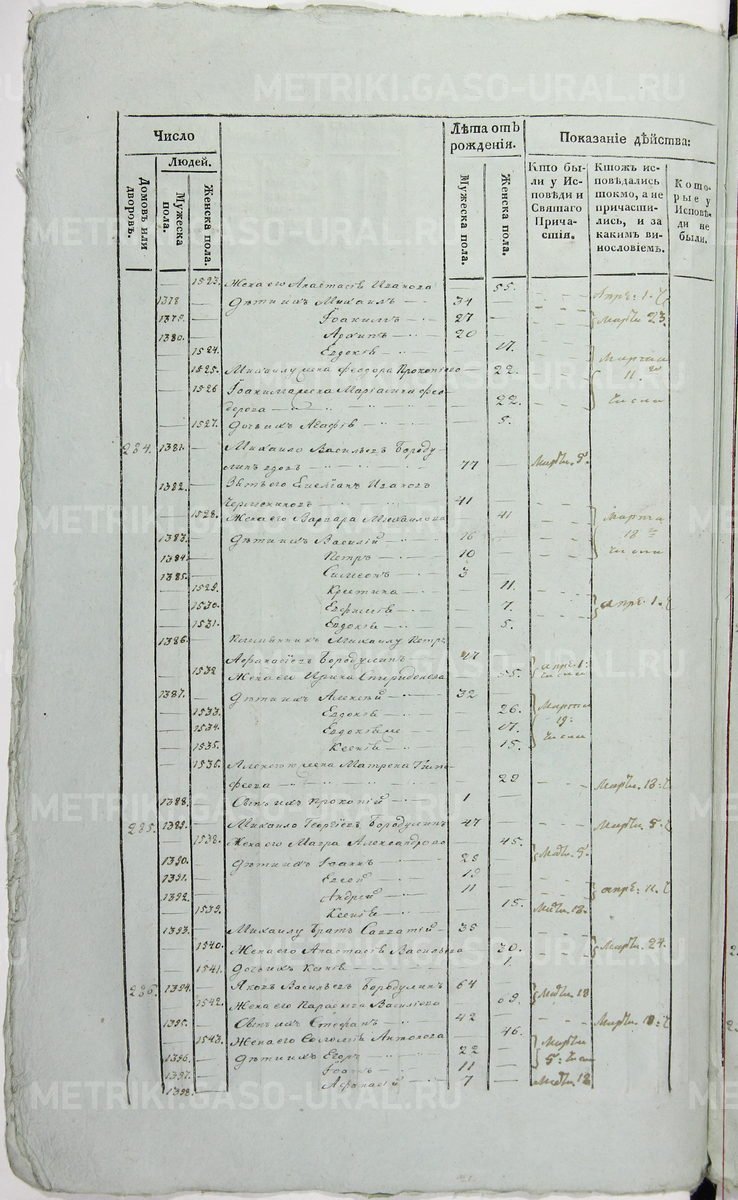 METRIKI.GASO-URAL.RU
Число
Людей.
Домовъ или дворовъ.
Мужеска пола.
Женска пола.
Лѣта отъ рожденія.
Мужеска пола.
Женска пола.
Показаніе дѣйства:
Кто бы-
ли у Ис-
повѣди и
Святаго
Прича-
стія.
Ктожъ ис-
повѣдались
токмо, а не
причасти-
лись, и за
какимъ ви-
нословіемъ.
Кото-
рые у
Исповѣ-
ди не
были.
1523. Жена его Анастасія Иванова 55.
1378 Дѣти ихъ Михаилъ 34 Апрѣ: 1.
1379. Іоакимъ 27 Марта 23
1380. Архипъ 20
1524. Евдокія 17.
1525. Михаилу жена Феодора Прокопіева 22. Марта
1526 Іоакиму жена Фео- 11.
дорова 22. числа
1527. Дочь ихъ Агафія 5.
234. 1381. Михайло Васильевъ Бороду-
линъ вдовъ 77 Март. 5.
1382. Зять его Иванов
41
1528. Жена его Варвара Михайлова 41 Марта
1383. Дѣти ихъ Василій 16 18
1384. Петръ 10 числа
1385. Симеонъ 3
1529. Христина 11.
1530. Евфимія 7. апрѣ: 1.
1531. Евдокія 5.
1386. Племянникъ Михаилу Петръ
Афанасіевъ Бородулинъ 47 Апрѣ: 1:
1532 Жена его Ирина Спиридонова 55. числа
1387. Дѣти ихъ Алексій 32
1533. Евдокія 26. Марта
1534. Евдокія 17. 19:
1535. Ксенія 15. числа
1536. Алексію жена Матрена Тимо-
феева 29 Март. 18:
1388. Сынъ ихъ Прокопій 1
235. 1389. Михайло Георгіевъ Бородулинъ 47 Март. 5:
1538. Жена его Мавра Александрова 45.
1390. Дѣти ихъ Іоаннъ 23 5.
1391. 19
1392. Андрей 11 апрѣ: 11.
1539. Ксенія 15. 18.
1393. Михаилу братъ Савватій 35
1540. Жена его Анастасія Васильева 30. Март. 24.
1541. Дочь ихъ 1.
236. 1394. Яковъ Васильевъ Бородулинъ 64 18
1542. Жена его Параскева Василіева 69.
1395. Сынъ ихъ Стефанъ 42 Март. 18:
1543. Жена его Антонова 46. Марта
1396. Дѣти ихъ Егоръ 22 5: числа
1397. 11
1398. Афанасій 7 18